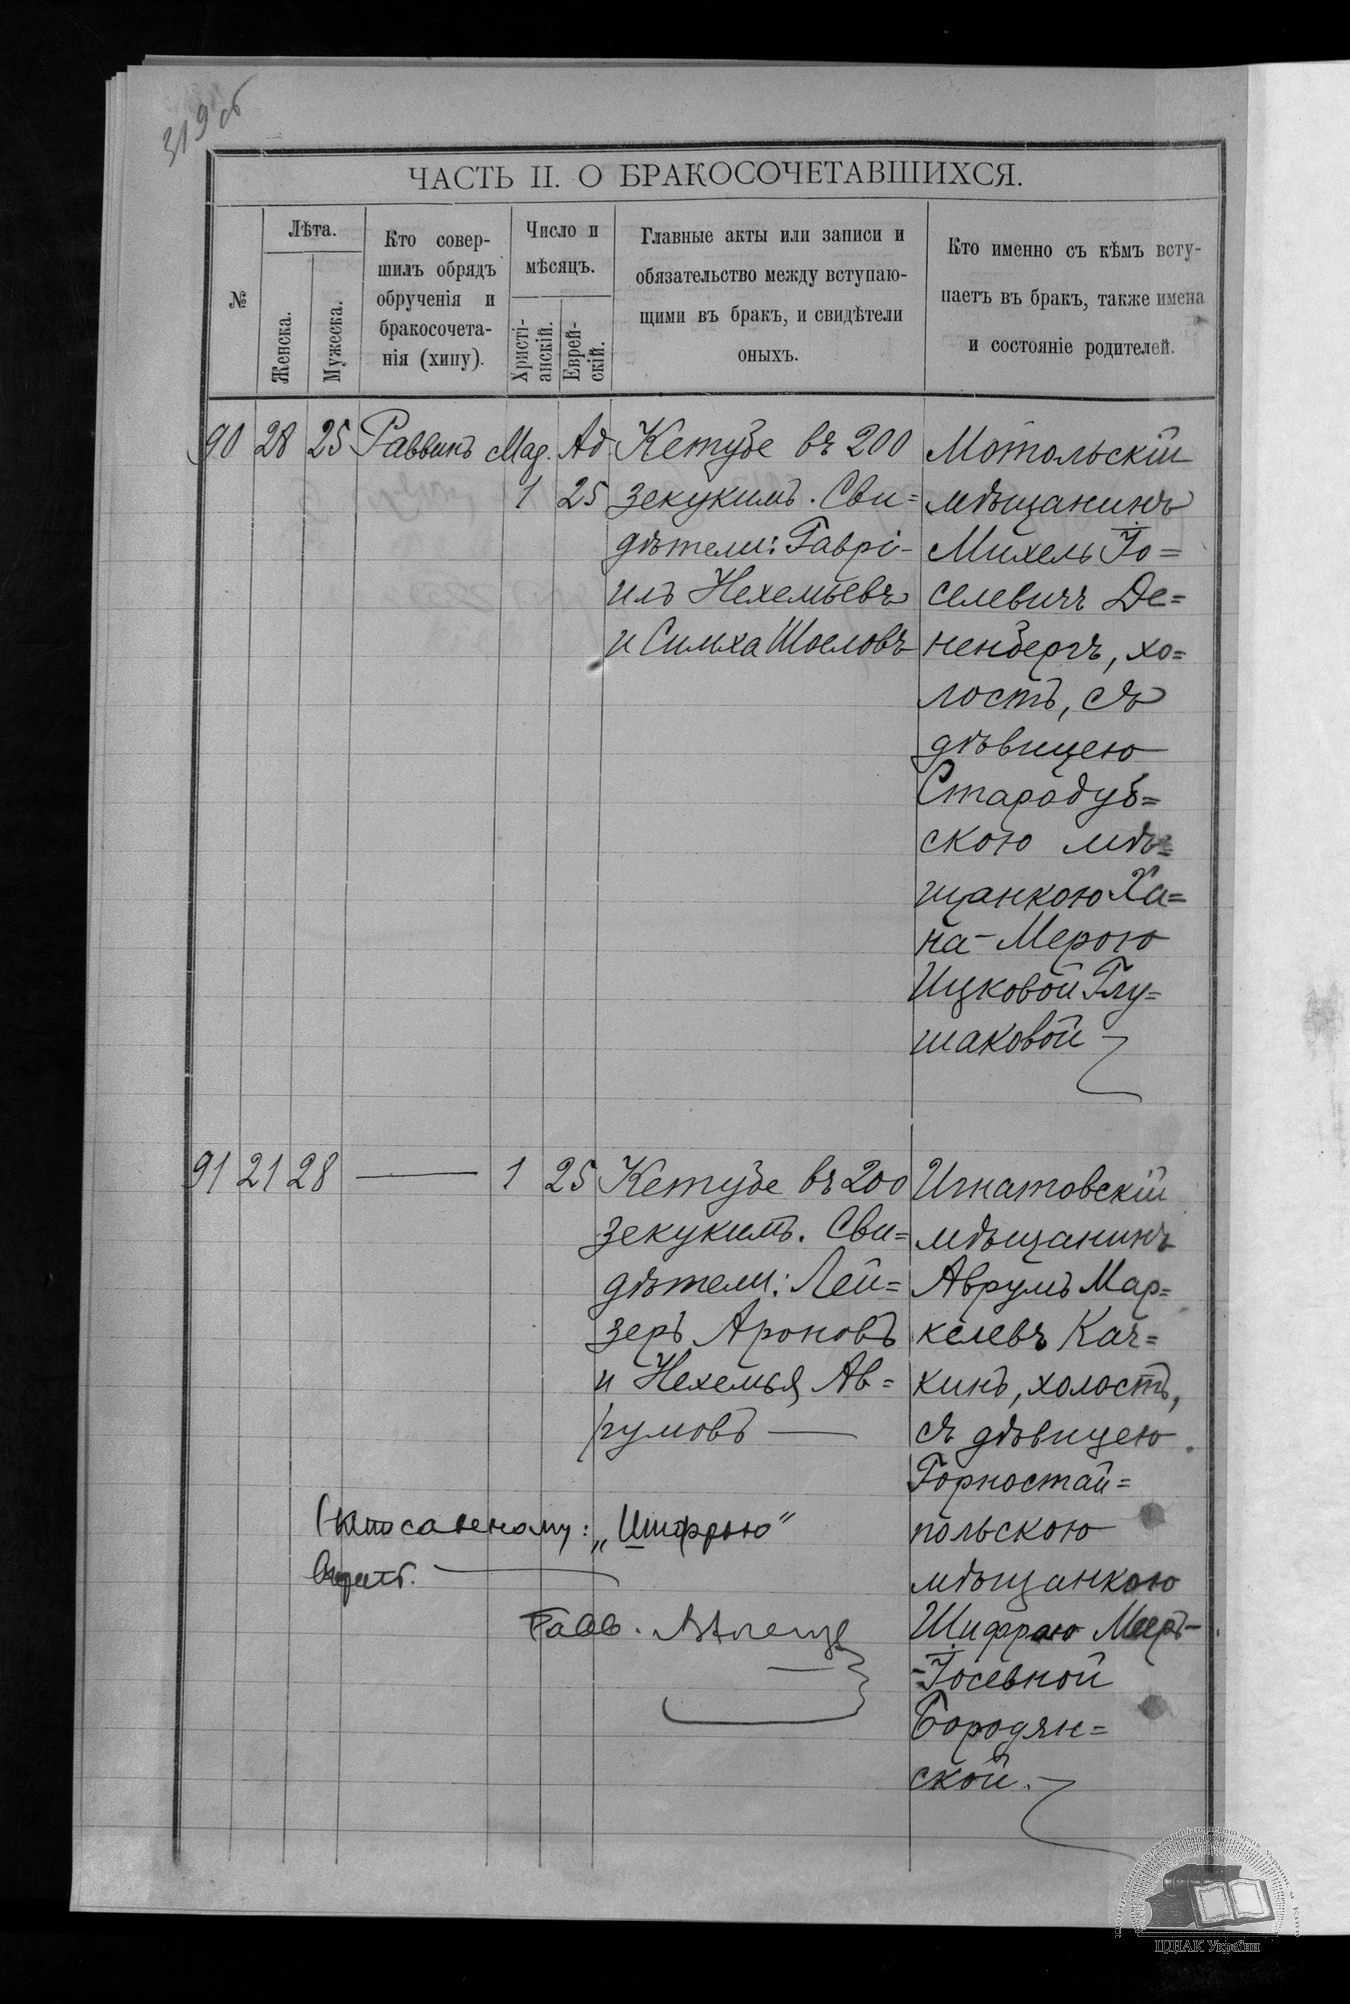 319 об
ЧАСТЬ II. О БРАКОСОЧЕТАВШИХСЯ.
№
Лѣта.
Женска.
Мужеска.
Кто совер-
шилъ обрядъ
обрученія и
бракосочета-
нія (хипу).
Число и
мѣсяцъ.
Христі-
анскій.
Еврей-
скій.
Главные акты или записи и
обязательство между вступаю-
щими въ бракъ, и свидѣтели
оныхъ.
Кто именно съ кѣмъ всту-
паетъ въ бракъ, также имена
и состояніе родителей.
90 28 25 Раввинъ Мар. Ад.
1 25
Кетубе въ 200
зекукимъ. Сви=
дѣтели: Гаврі-
илъ Нехемьевъ
и Симха Шоеловъ
Мотольскій
мѣщанинъ
Михель Іо=
селевичъ Де=
ненбергъ, хо=
лостъ, съ
дѣвицею
Стародуб=
скою мѣ=
щанкою Ха=
на-Мерою
Ицковой Глу=
шаковой
91 21 28 — 1 25
Кетубе въ 200
зекукимъ. Сви=
дѣтели: Лей=
зеръ Ароновъ
и Нехемья Ав=
румовъ —
Игнатовскій
мѣщанинъ
Аврумъ Мар=
келевъ Кач=
кинъ, холостъ,
съ дѣвицею
Горностай=
польскою
мѣщанкою
Шифрою Меръ-
-Іосевной
Бородян=
ской.
"Шифрою"
Равв.
ЦДІАК України